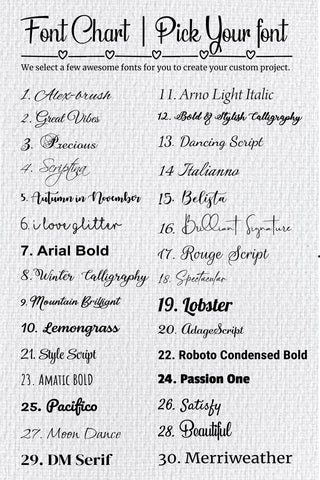 Font Chart | Pick Your font
We select a few awesome fonts for you to create your custom project.
1. Alex-brush
2. Great Vibes
3. Precious
4. Scriptina
5. Autumn in November
6. i love glitter
7. Arial Bold
8. Winter Calligraphy
9. Mountain Brilliant
10. Lemongrass
21. Style Script
23. AMATIC BOLD
25. Pacifico
27. Moon Dance
29. DM Serif
11. Arno Light Italic
12. Bold & Stylish Calligraphy
13. Dancing Script
14 Italianno
15. Belista
16. Brilliant Signature
17. Rouge Script
18. Spectacular
19. Lobster
20. AdageScript
22. Roboto Condensed Bold
24. Passion One
26. Satisfy
28. Beautiful
30. Merriweather